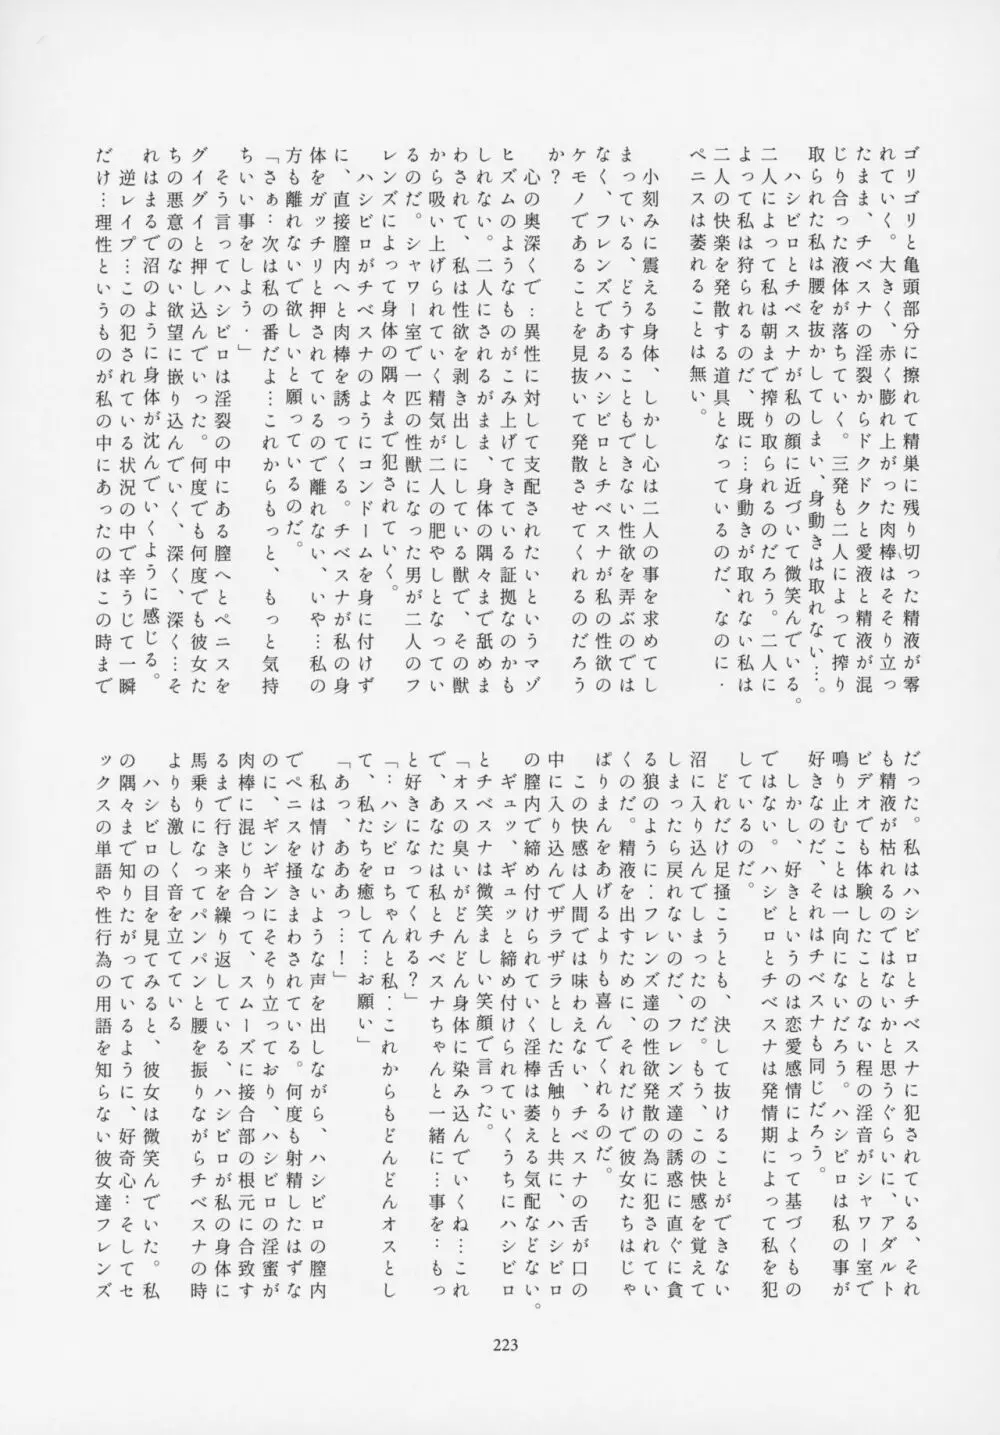 ゴリゴリと亀頭部分に擦れて精巣に残り切った精液が零
れていく。大きく、赤く膨れ上がった肉棒はそそり立っ
たまま、チベスナの淫裂からドクドクと愛液と精液が混
じり合った液体が落ちていく。三発も二人によって搾り
取られた私は腰を抜かしてしまい、身動きは取れない…。
ハシビロとチベスナが私の顔に近づいて微笑んでいる。
二人によって私は朝まで搾り取られるのだろう。二人に
よって私は狩られるのだ、既に…身動きが取れない私は
二人の快楽を発散する道具となっているのだ、なのに‥
ペニスは萎れることは無い。
小刻みに震える身体、しかし心は二人の事を求めてし
まっている、どうすることもできない性欲を弄ぶのでは
なく、フレンズであるハシビロとチベスナが私の性欲の
ケモノであることを見抜いて発散させてくれるのだろう
か？
心の奥深くで…異性に対して支配されたいというマゾ
ヒズムのようなものがこみ上げてきている証拠なのかも
しれない。二人にされるがまま、身体の隅々まで舐めま
わされて、私は性欲を剥き出しにしている獣で、その獣
から吸い上げられていく精気が二人の肥やしとなってい
るのだ。シャワー室で一匹の性獣になった男が二人のフ
レンズによって身体の隅々まで犯されていく。
ハシビロがチベスナのようにコンドームを身に付けず
に、直接膣内へと肉棒を誘ってくる。チベスナが私の身
体をガッチリと押されているので離れない、いや…私の
方も離れないで欲しいと願っているのだ。
「さぁ‥次は私の番だよ…これからもっと、もっと気持
ちいい事をしよう‥」
そう言ってハシビロは淫裂の中にある膣へとペニスを
グイグイと押し込んでいった。何度でも何度でも彼女た
ちの悪意のない欲望に嵌り込んでいく、深く、深く…そ
れはまるで沼のように身体が沈んでいくように感じる。
逆レイプ…この犯されている状況の中で辛うじて一瞬
だけ…理性というものが私の中にあったのはこの時まで
だった。私はハシビロとチベスナに犯されている、それ
も精液が枯れるのではないかと思うぐらいに、アダルト
ビデオでも体験したことのない程の淫音がシャワー室で
鳴り止むことは一向にないだろう。ハシビロは私の事が
好きなのだ、それはチベスナも同じだろう。
しかし、好きというのは恋愛感情によって基づくもの
ではない。ハシビロとチベスナは発情期によって私を犯
しているのだ。
どれだけ足掻こうとも、決して抜けることができない
沼に入り込んでしまったのだ。もう、この快感を覚えて
しまったら戻れないのだ、フレンズ達の誘惑に直ぐに貪
る狼のように‥フレンズ達の性欲発散の為に犯されてい
くのだ。精液を出すために、それだけで彼女たちはじゃ
ぱりまんをあげるよりも喜んでくれるのだ。
この快感は人間では味わえない、チベスナの舌が口の
中に入り込んでザラザラとした舌触りと共に、ハシビロ
の膣内で締め付けられていく淫棒は萎える気配などない。
ギュッ、ギュッと締め付けられていくうちにハシビロ
とチベスナは微笑ましい笑顔で言った。
「オスの臭いがどんどん身体に染み込んでいくね…これ
で、あなたは私とチベスナちゃんと一緒に…事を‥もっ
と好きになってくれる？」
「‥ハシビロちゃんと私‥これからもどんどんオスとし
て、私たちを癒して…お願い」
「あっ、あああっ…！」
私は情けないような声を出しながら、ハシビロの膣内
でペニスを掻きまわされている。何度も射精したはずな
のに、ギンギンにそそり立っており、ハシビロの淫蜜が
肉棒に混じり合って、スムーズに接合部の根元に合致す
るまで行き来を繰り返している、ハシビロが私の身体に
馬乗りになってパンパンと腰を振りながらチベスナの時
よりも激しく音を立てている
ハシビロの目を見てみると、彼女は微笑んでいた。私
の隅々まで知りたがっているように、好奇心…そしてセ
ックスの単語や性行為の用語を知らない彼女達フレンズ
223